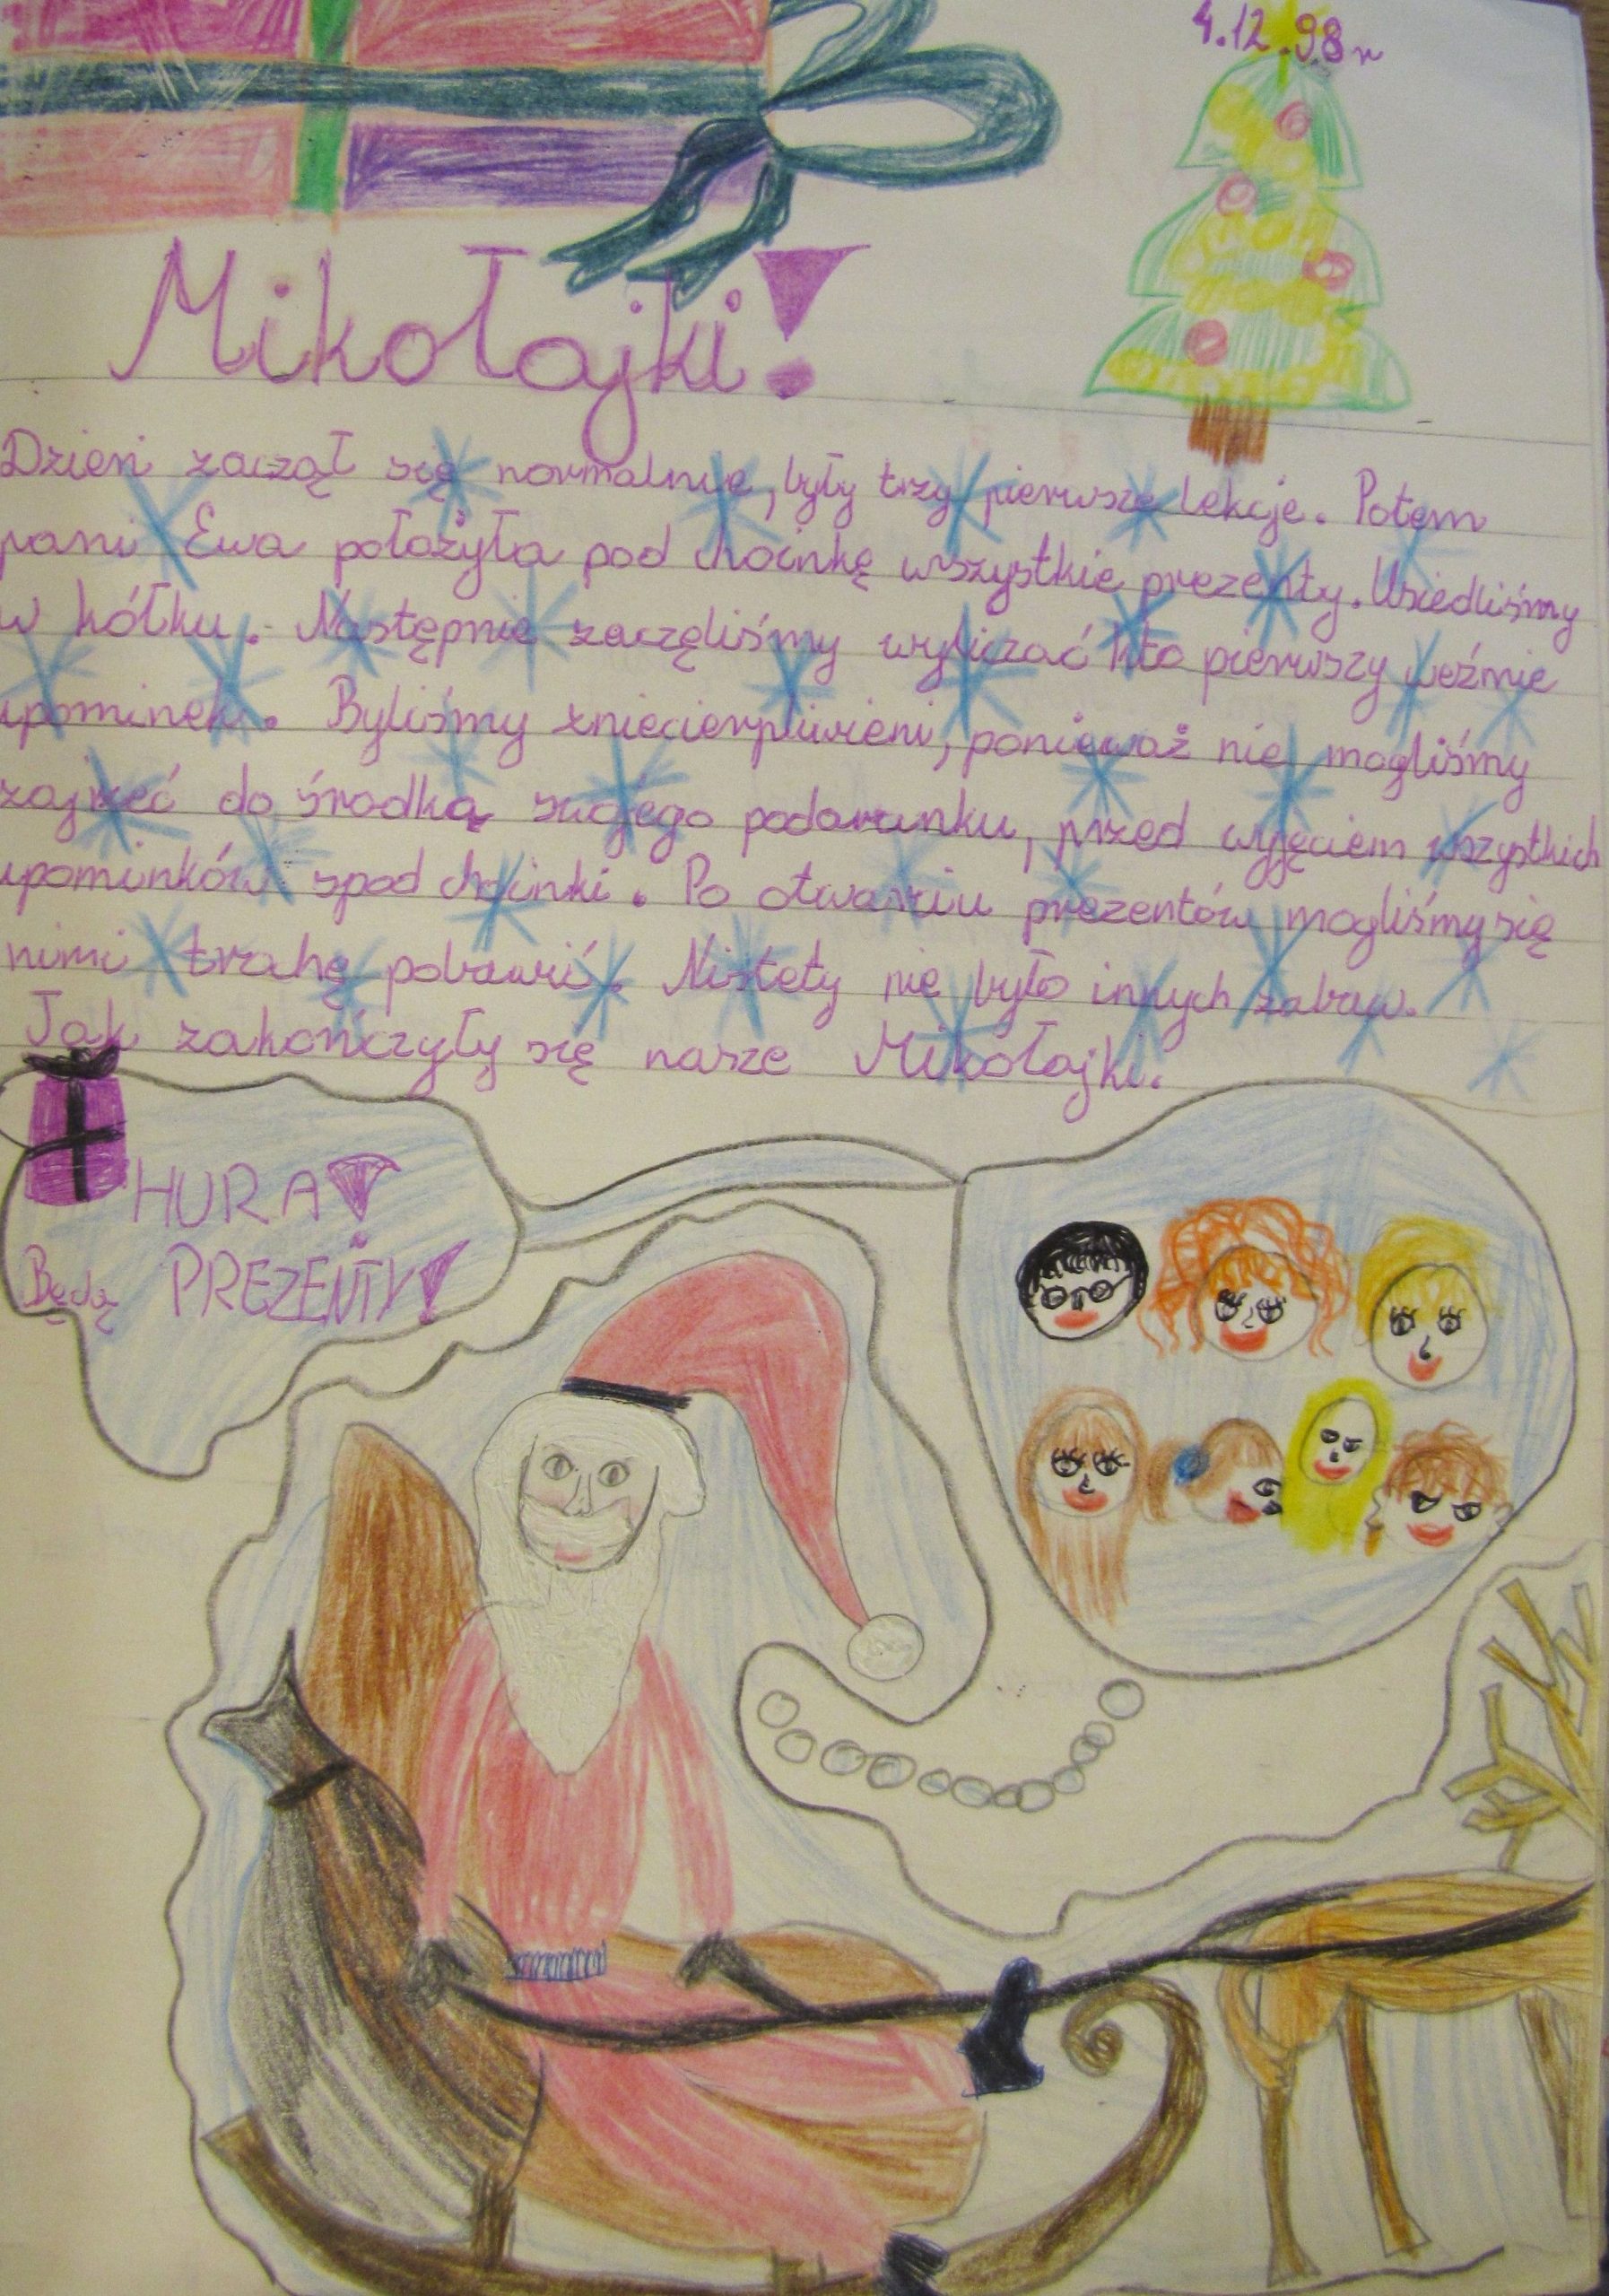 4.12.98r
Mikołajki!
Dzień zaczął się normalnie, były trzy pierwsze lekcje. Potem
pani Ewa położyła pod choinkę wszystkie prezenty. Usiedliśmy
w kółku. Następnie zaczęliśmy wyliczać kto pierwszy weźmie
upominek. Byliśmy zniecierpliwieni, ponieważ nie mogliśmy
zajrzeć do środka swojego podarunku, przed wyjęciem wszystkich
upominków spod choinki. Po otwarciu prezentów mogliśmy się
nimi trochę pobawić. Nistety nie było innych zabaw.
Tak zakończyły się nasze Mikołajki.
HURA!
Będą PREZENTY!